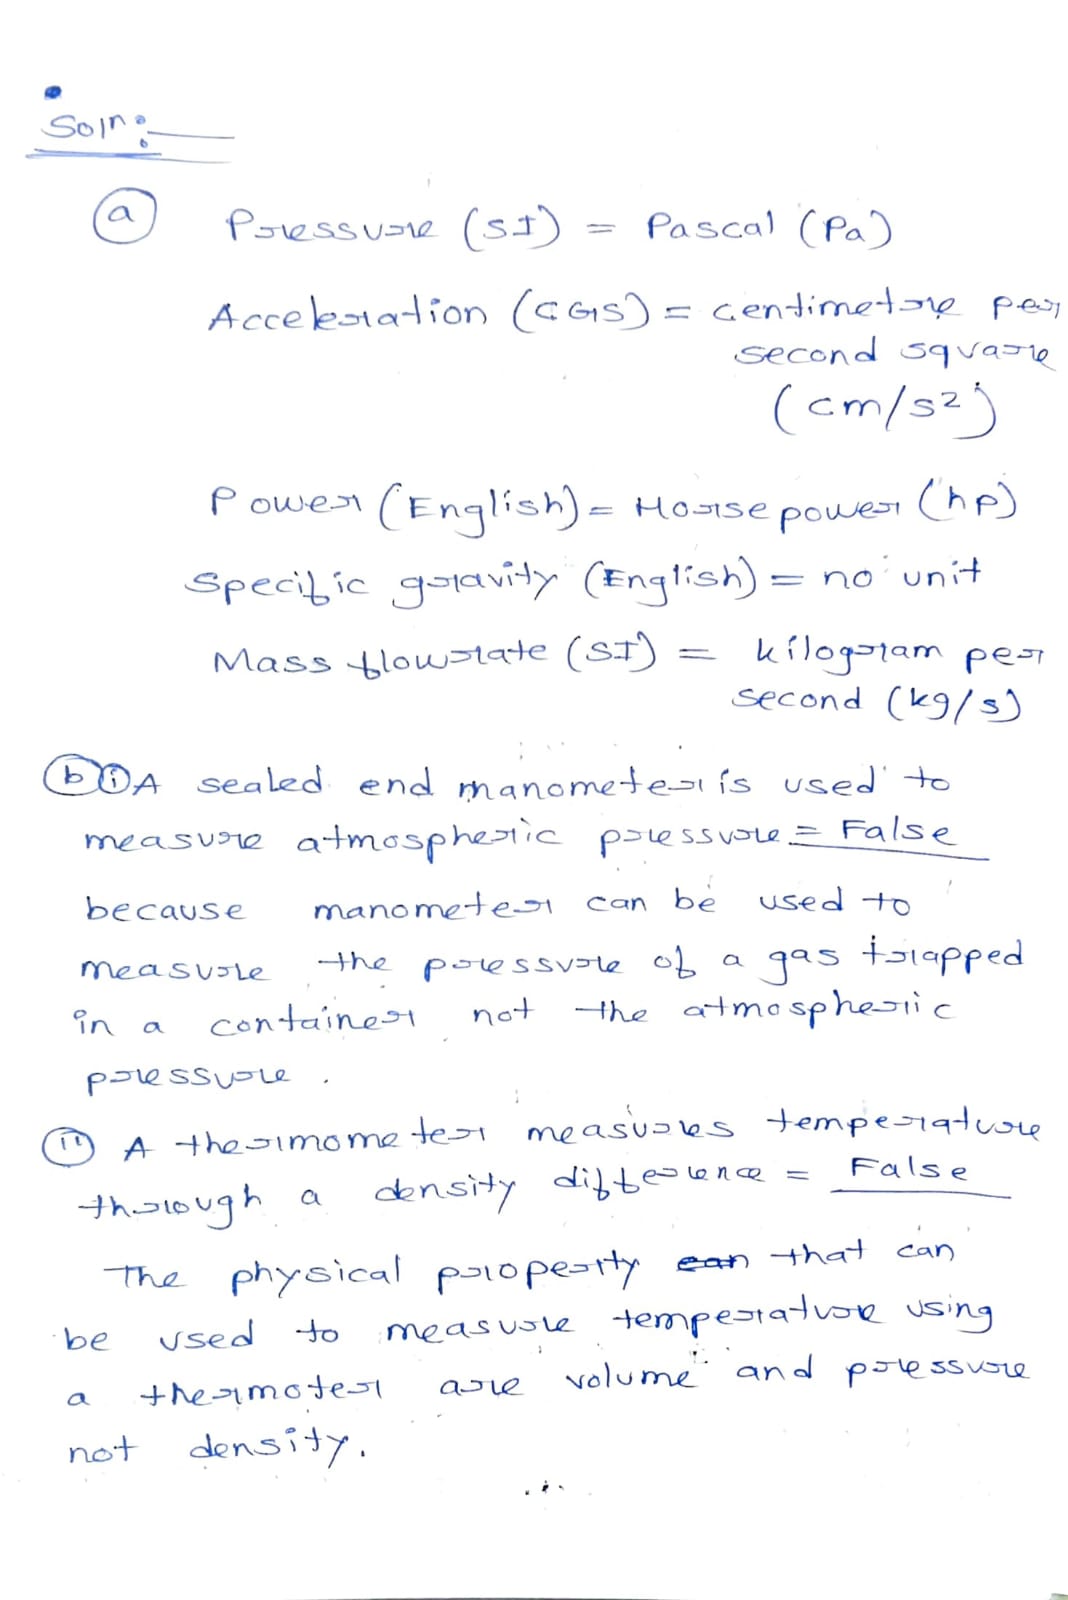 Soln:
(a) Pressure (SI) = Pascal (Pa)
Acceleration (CGS) = centimetre per
second square
(cm/s²)
Power (English) = Horse power (hp)
Specific gravity (English) = no unit
Mass flowrate (SI) = kilogram per
second (kg/s)
(b) (i) A sealed end manometer is used to
measure atmospheric pressure = False
because manometer can be used to
measure the pressure of a gas trapped
in a container not the atmospheric
pressure.
(ii) A thermometer measures temperature
through a density difference = False
The physical property can that can
be used to measure temperature using
a thermoter are volume and pressure
not density.